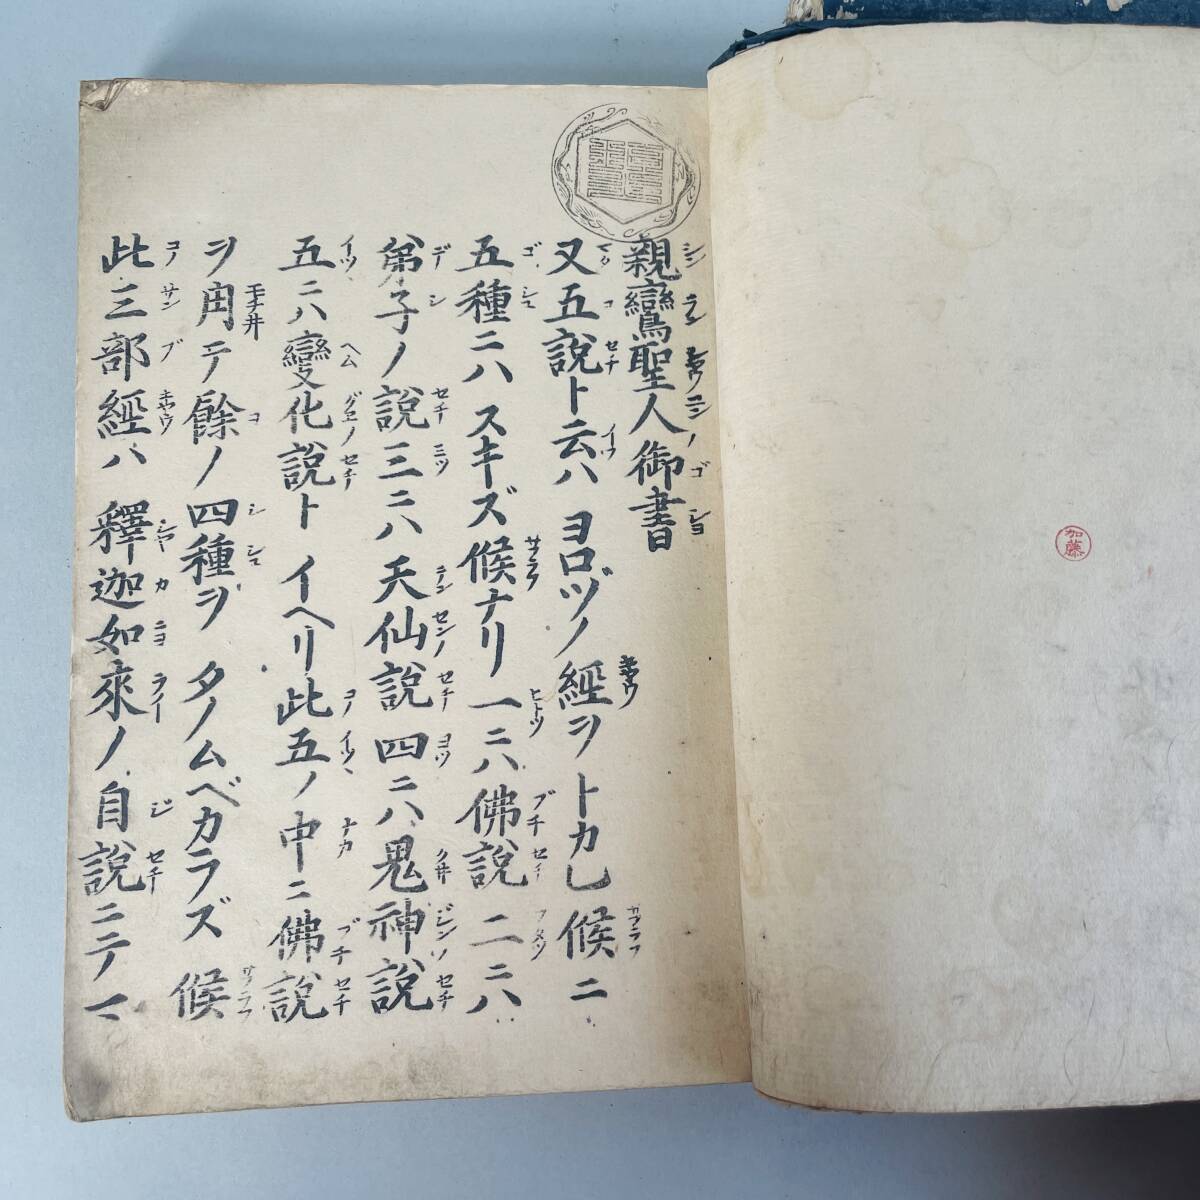 親鸞聖人御書
又五説ト云ハヨロヅノ經ヲトカレ候ニ
五種ニハスギズ候ナリ一ニハ佛説二ニハ
弟子ノ説三ニハ天仙説四ニハ鬼神説
五ニハ變化説トイヘリ此五ノ中ニ佛説
ヲ用テ餘ノ四種ヲタノムベカラズ候
此三部經ハ釋迦如來ノ自説ニテマ
加藤